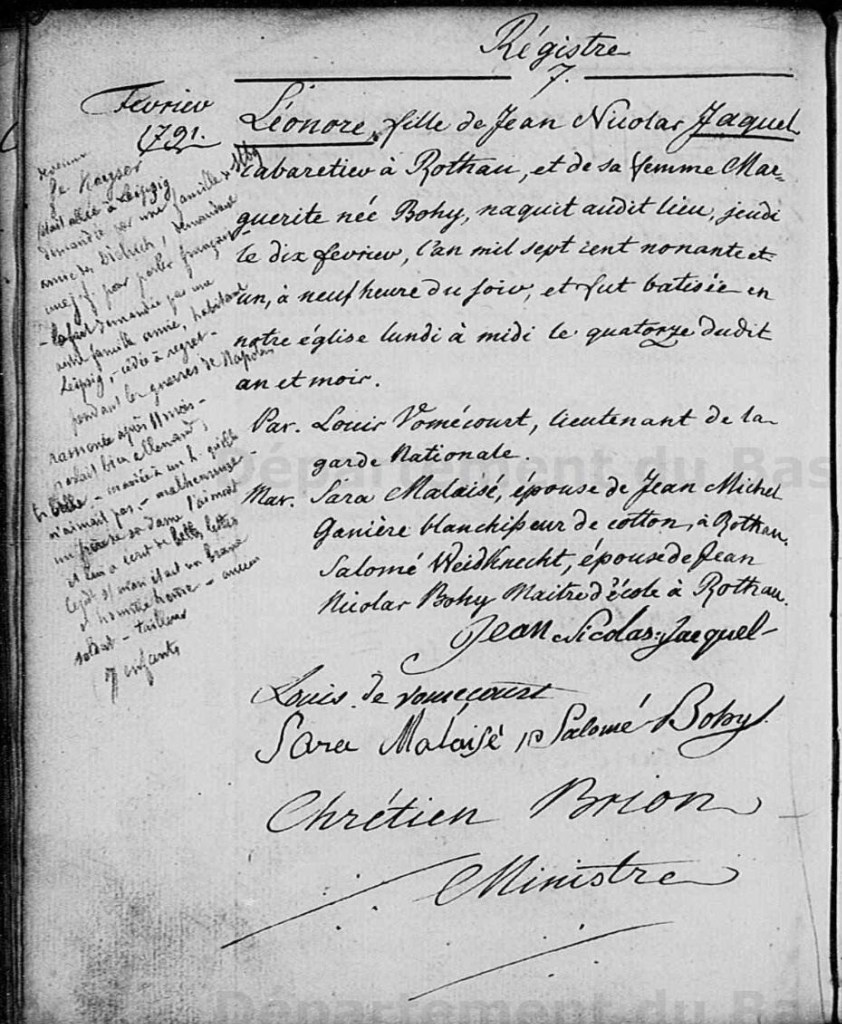 Régistre
7.
Fevrier
1791.
Léonore, fille de Jean Nicolas Jaquel
cabaretier à Rothau, et de sa femme Mar-
guerite née Bohy, naquit audit lieu, jeudi
le dix fevrier, l'an mil sept cent nonante et
un, à neuf heure du soir, et fut batisée en
notre église lundi à midi le quatorze dudit
an et mois.
Par. Louis Vomécourt, lieutenant de la
garde Nationale.
Mar. Sara Malaisé, épouse de Jean Michel
Ganière blanchisseur de cotton, à Rothau.
Salomé Weidknecht, épouse de Jean
Nicolas Bohy Maitre d'école à Rothau.
Jean Nicolas Jacquel
Louis de vomecourt
Sara Malaisé, Salomé Bohy
Chrétien Brion
Ministre
devenue
fe Kayser
était allée à Leipzig
demandée par une famille
amie des Dietrich, demandant
une j. f. pour parler français
demandée par une
autre famille amie, habitant
Leipsig, - cédée à regret -
pendant les guerres de Napoléon
ramenée après 11 mois -
parlait bien allemand,
tr. belle, - mariée à un h. qu'elle
n'aimait pas, - malheureuse -
un frère de sa dame l'aimait
et lui a écrit de belles lettres
et honnête homme - ancien
soldat - tailleur
7 enfants
Département du Bas
Département du Bas